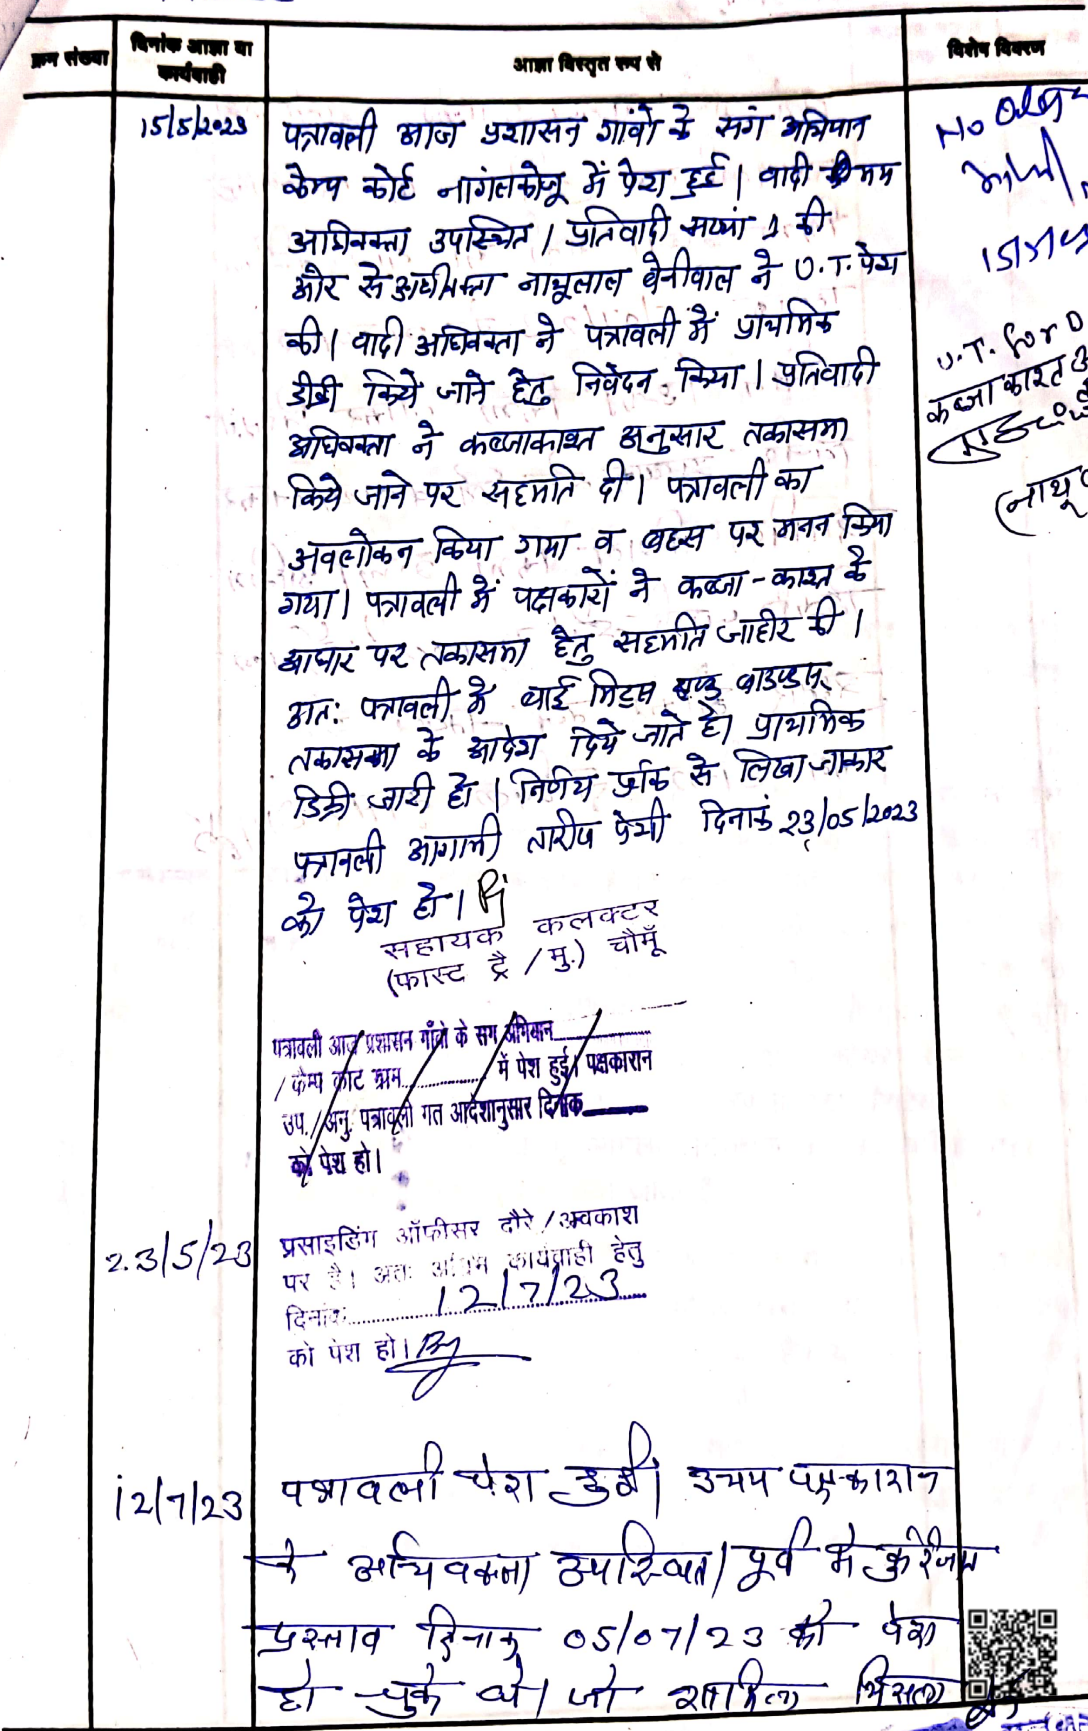 क्रम संख्या
दिनांक आज्ञा या कार्यवाही
आज्ञा विस्तृत रूप से
विशेष विवरण
15/5/2023
पत्रावली आज प्रशासन गांवो के संग अभियान
केम्प कोर्ट नांगलकोजू में पेश हुई। वादी मय
अधिवक्ता उपस्थित। प्रतिवादी सख्यां 1 की
और से अधिवक्ता नाथूलाल बेनीवाल ने U.T. पेश
की। वादी अधिवक्ता ने पत्रावली में प्राथमिक
डीक्री किये जाने हेतु निवेदन किया। प्रतिवादी
अधिवक्ता ने कब्जाकाश्त अनुसार तकासमा
किये जाने पर सहमति दी। पत्रावली का
अवलोकन किया गया व बहस पर मनन किया
गया। पत्रावली में पक्षकारों ने कब्जा-काश्त के
आधार पर तकासमा हेतु सहमति जाहीर की।
अत: पत्रावली में बाई मिट्स एण्ड बाउण्डस्
तकासमा के आदेश दिये जाते है। प्राथमिक
डिक्री जारी हो। निर्णय पृथक से लिखा जाकर
पत्रावली आगामी तारीख पेशी दिनांक 23/05/2023
को पेश हो।
सहायक कलक्टर
(फास्ट ट्रै / मु.) चौमूँ
No
U.T. for D
कब्जा काश्त
(नाथू
पत्रावली आज प्रशासन गाँवो के संग अभियान
/ केम्प कोट ग्राम.............. में पेश हुई। पक्षकारान
उप./अनु. पत्रावली गत आदेशानुसार दिनांक
को पेश हो।
23/5/23
प्रसाइडिंग ऑफीसर दौरे / अवकाश
पर है। अतः अग्रिम कार्यवाही हेतु
दिनांक 12/7/23
को पेश हो।
12/7/23
पत्रावली पेश हुई। उभय पक्षकारान
के अधिवक्ता उपस्थित। पूर्व में कुरेजात
प्रस्ताव दिनांक 05/07/23 को पेश
हो चुके थे। जो शामिल मिसल